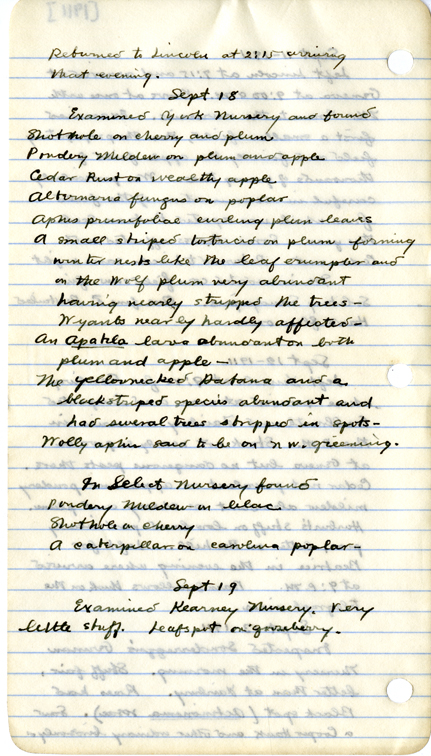 Returned to Lincoln at 2:15 arriving
that evening.
Sept. 18
Examined York Nursery and found
Shothole on cherry and plum
Powdery Mildew on plum and apple
Cedar Rust on Wealthy apple
Alternaria fungus on poplar
Aphis prunifoliae curling plum leaves
A small striped tortricid on plum forming
winter nests like the leaf crumpler and
on the Wolf plum very abundant
having nearly stripped the trees—
Wyants nearby hardly affected—
An Apatela larva abundant on both
plum and apple—
The yellownecked Datana and a
blackstriped species abundant and
had several trees stripped in spots—
Wolly aphis said to be on N.W. greening.
In Select Nursery found
Powdery Mildew on lilac
Shothole on cherry
A caterpillar on carolina poplar—
Sept 19
Examined Kearney Nursery. Very
little stuff. Leafspot on gooseberry.